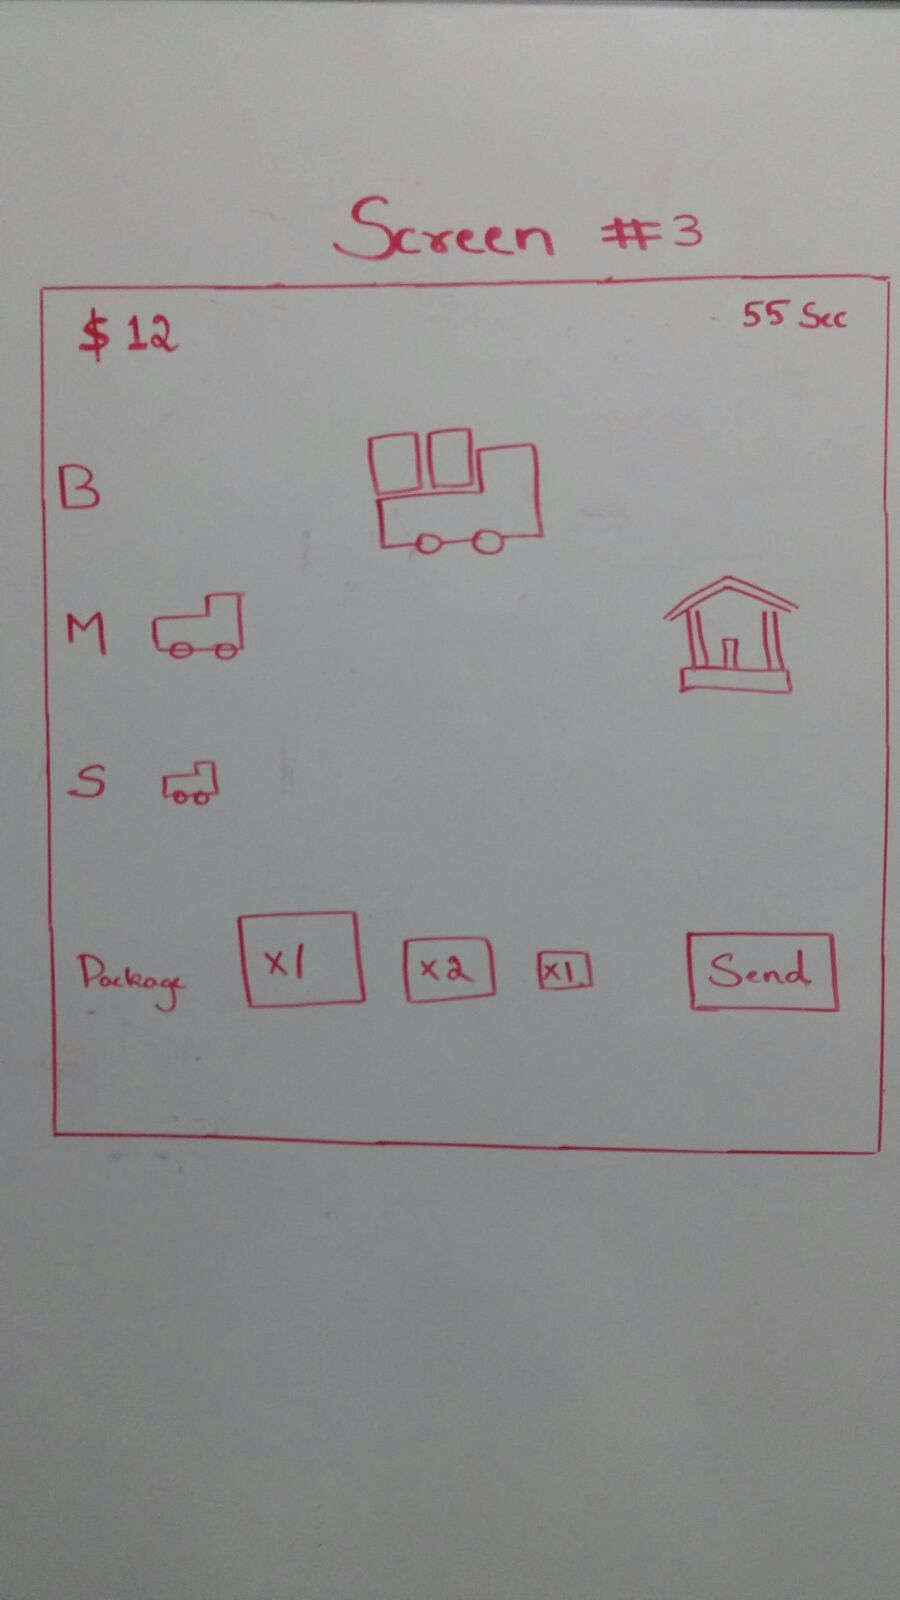 Screen #3
$ 12
55 Sec
B
M
S
Package x1 x2 x1 Send